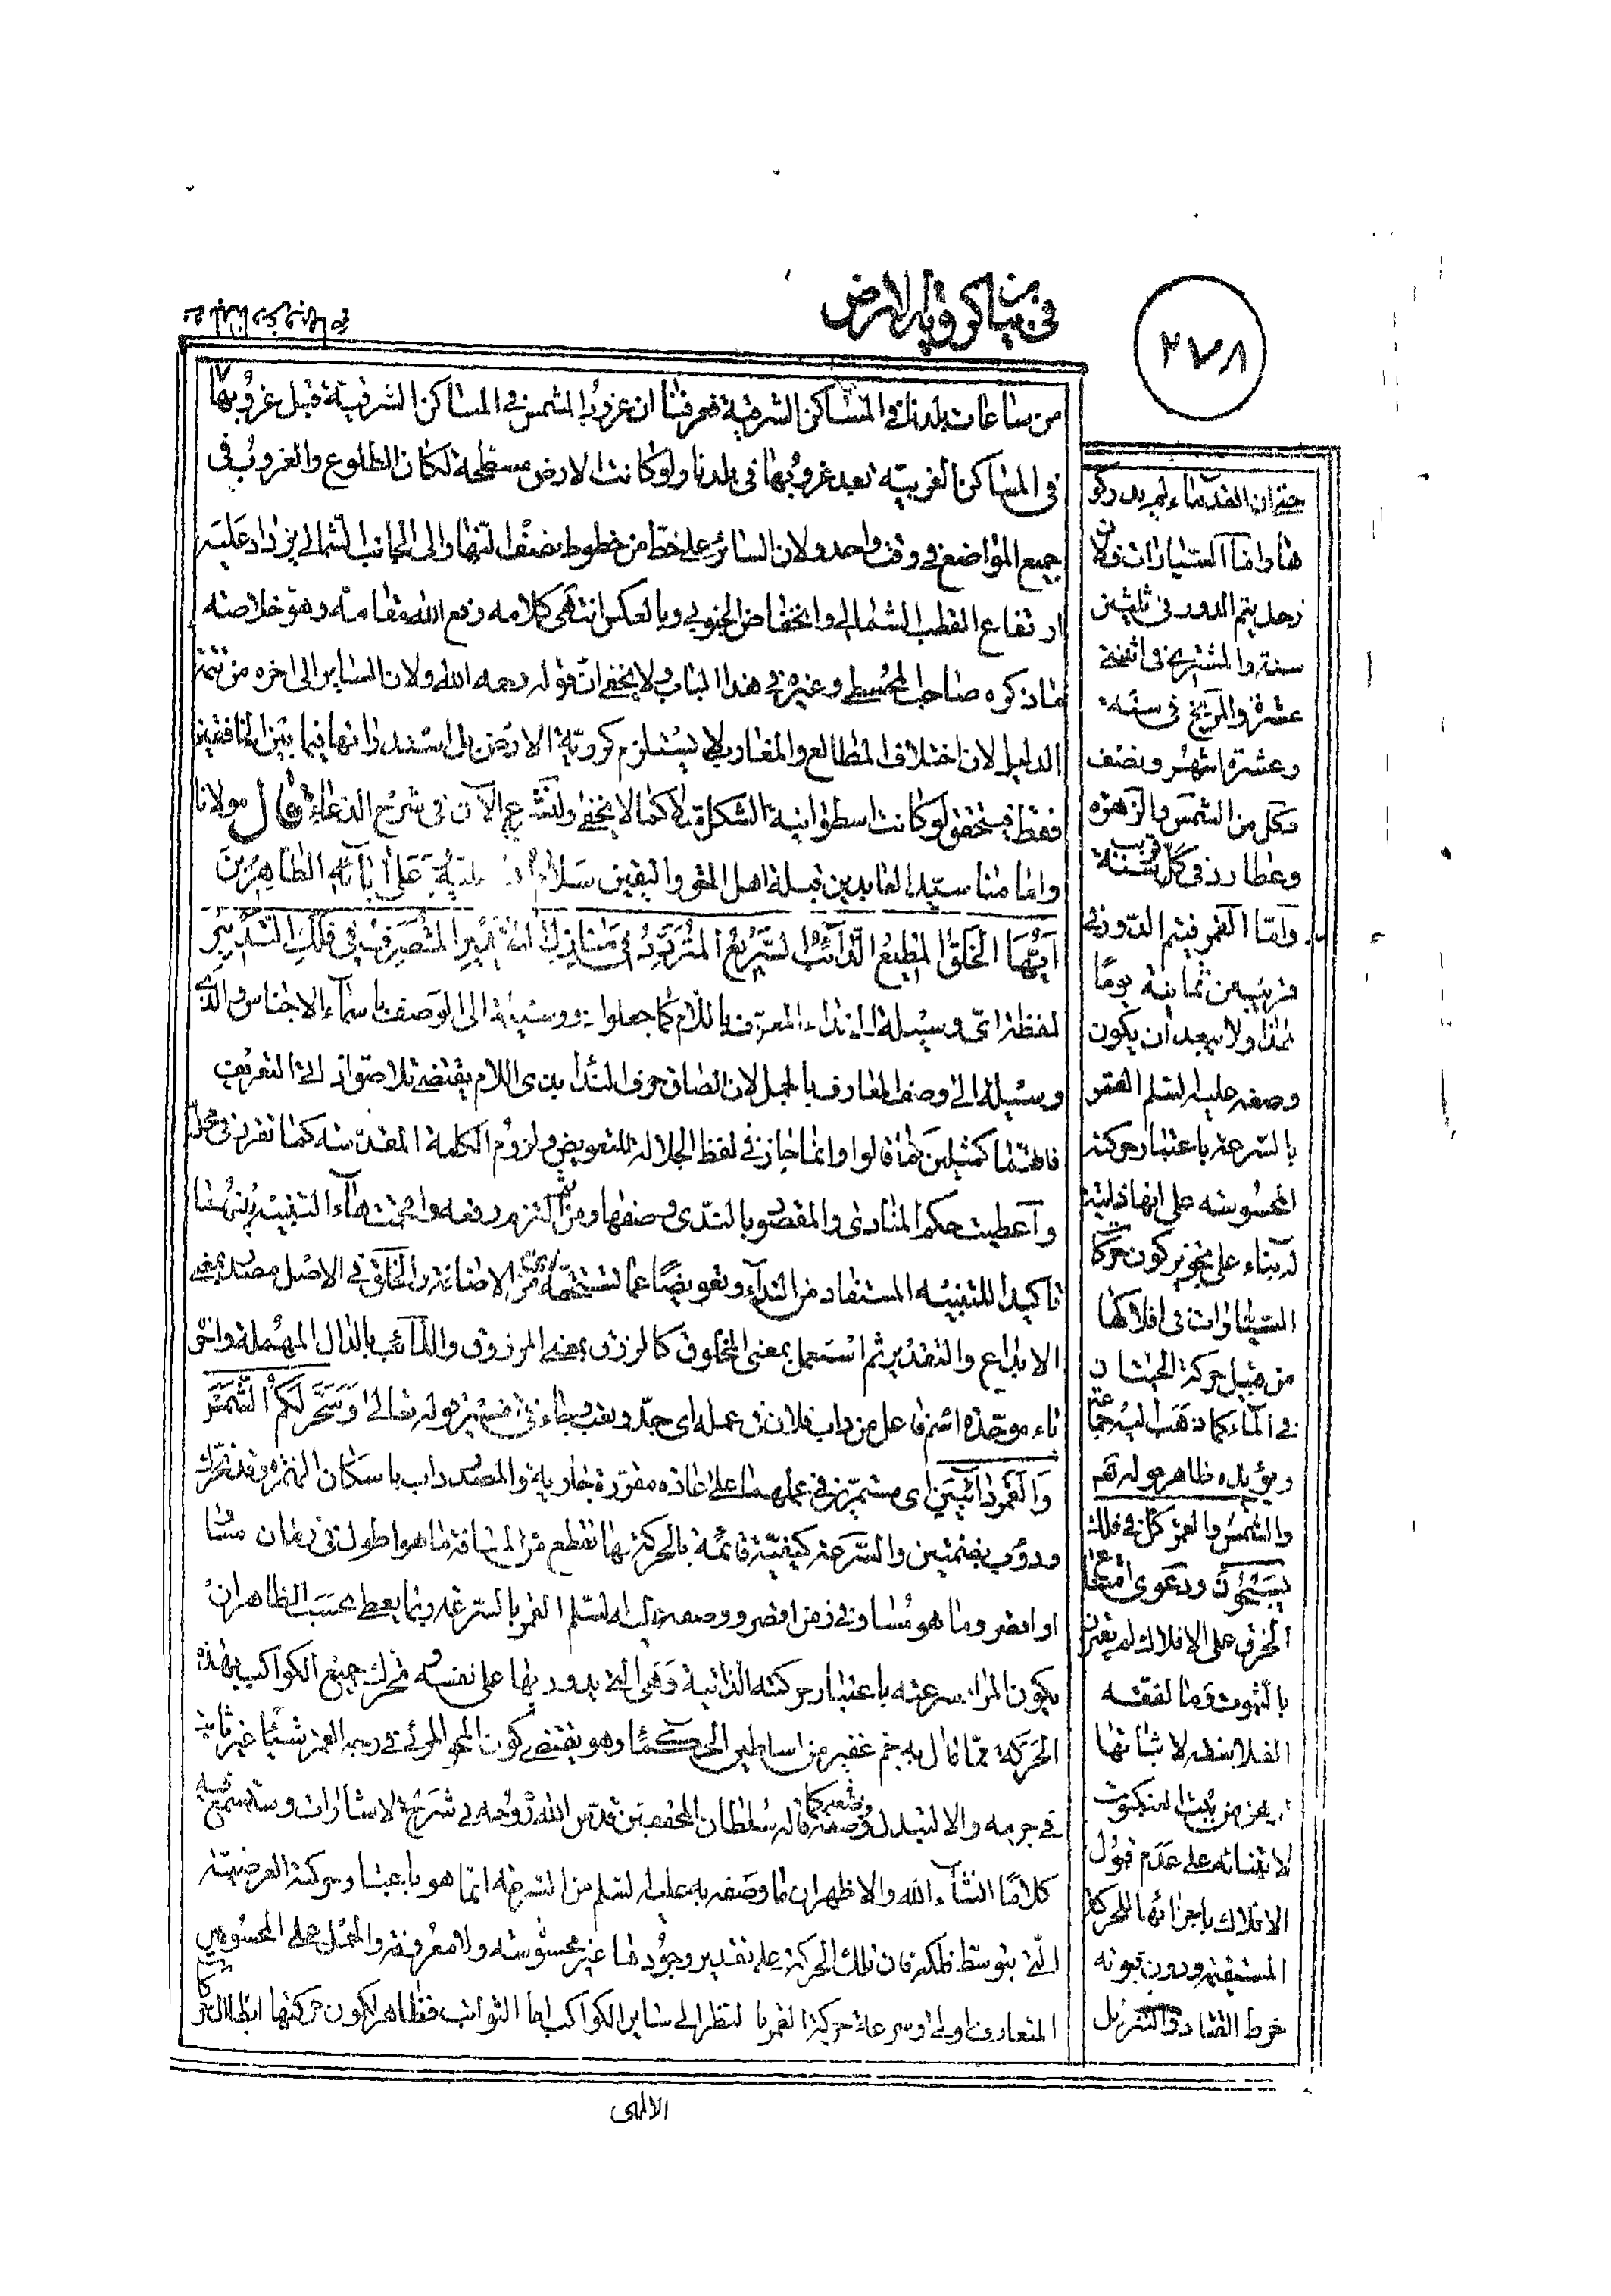 ٢٧٨
في بيان كروية الارض
من ساعات بلدنا في المساكن الشرقية فعرفنا ان غروب الشمس في المساكن الشرقية قبل غروبها
في المساكن الغربية بعد غروبها في بلدنا ولو كانت الارض مسطحة لكان الطلوع والغروب في
جميع المواضع في وقت واحد ولان السائر على خط من خطوط نصف النهار الى الجانب الشمالي يزداد عليه
ارتفاع القطب الشمالي وانخفاض الجنوبي وبالعكس انتهى كلامه رفع الله مقامه وهو خلاصة
ما ذكره صاحب المجسطي وغيره في هذا الباب ولا يخفى ان قوله رحمه الله ولان السائر الى اخره من تتمة
الدليل لان اختلاف المطالع والمغارب لا يستلزم كروية الارض بل استدارتها فيما بين الخافقين
فقط فيتحقق لو كانت اسطوانية الشكل مثلا كما لا يخفى ولنشرع الآن في شرح الدعاء قال مولانا
وامامنا سيد العابدين قبلة اهل الحق واليقين سلام الله عليه وعلى آبائه الطاهرين
أيها الخلق المطيع الدائب السريع المتردد في منازل التقدير المتصرف في فلك التدبير
لفظة اي وسيلة الى نداء المعرف باللام كما جعلوا ذو وسيلة الى الوصف باسماء الاجناس والذي
وسيلة الى وصف المعارف بالجمل لان الصاق حرف النداء بذي اللام يقتضي تلاصق اداتي التعريف
فانهما كمثلين كما قالوا وانما جاز في لفظ الجلالة للتعويض ولزوم الكلمة المقدسة كما تقرر في محله
واعطيت حكم المنادى والمقصود بالنداء وصفها ومن ثم التزم رفعه واقحمت هاء التنبيه بينهما
تاكيدا للتنبيه المستفاد من النداء وتعويضا عما تستحقه اي من الاضافة والخلق في الاصل مصدر بمعنى
الابداع والتقدير ثم استعمل بمعنى المخلوق كالرزق بمعنى المرزوق والدائب بالدال المهملة واخره
باء موحدة اسم فاعل من داب فلان في عمله اي جد وتعب وجاء في تفسير قوله تعالى وسخر لكم الشمس
والقمر دائبين اي مستمرين في عملهما على عادة مقررة جارية والمصدر داب باسكان الهمزه وقد تحرك
ودؤب بضمتين والسرعة كيفية قائمة بالحركة بها تقطع من المسافة ما هو اطول في زمان مساو
او اقصر وما هو مساو في زمن اقصر ووصفه عليه السلم القمر بالسرعة ربما يعطى بحسب الظاهر ان
يكون المراد سرعته باعتبار حركته الذاتية وهي التي يدور بها على نفسه وتحرك جميع الكواكب بهذه
الحركة مما قال به جم غفير من اساطين الحكماء وهو يقتضي كون المحو المرئي في وجه القمر شيئا غير ثابت
في جرمه والا لتبدل وضعه كما قاله سلطان المحققين قدس الله روحه في شرح الاشارات وستسمع فيه
كلاما انشاء الله والاظهر ان ما وصفه به عليه السلم من السرعة انما هو باعتبار حركته العرضية
التي بتوسط فلكه فان تلك الحركة على تقدير وجودها غير محسوسة ولا معروفة والحمل على المحسوس
المتعارف اولى وسرعة حركة القمر بالنظر الى سائر الكواكب اما الثوابت فظاهر لكون حركتها ابطأ الحركات
حتى ان القدماء لم يدركوها
واما السيارات فلان
زحل يتم الدور في ثلثين
سنة والمشتري في اثنتي
عشرة والمريخ في سنة
وعشرة اشهر ونصف
وكل من الشمس والزهرة
وعطارد في قريب كل سنة
واما القمر فيتم الدور في
قريب من ثمانية يوما
هذا ولا يبعد ان يكون
وصفه عليه السلم القمر
بالسرعة باعتبار حركته
المحسوسة على انها ذاتية
له بناء على تجويز كون حركات
السيارات في افلاكها
من قبيل حركة الحيتان
في الماء كما ذهب اليه جماعة
ويؤيده ظاهر قوله تعالى
والشمس والقمر كل في فلك
يسبحون ودعوى امتناع
الخرق على الافلاك لم تقترن
بالثبوت وما لفقه
الفلاسفة لاثباتها
اوهن من بيت العنكبوت
لابتنائه على عدم قبول
الافلاك باجزائها للحركة
المستقيمة ودون ثبوته
خرط القتاد والتنزيل
الالهى